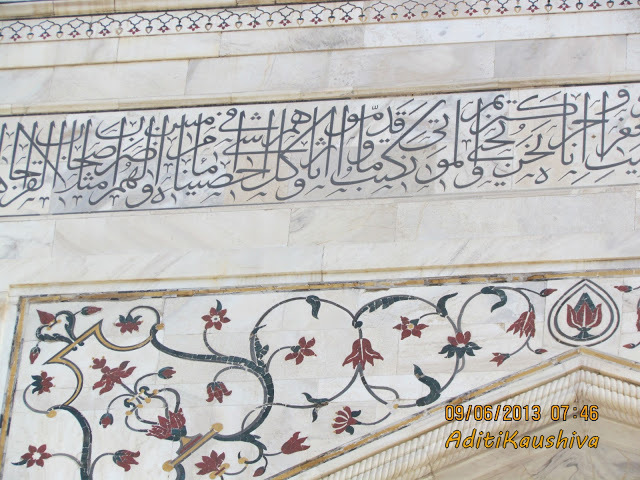 واجر كريم انا نحن نحي الموتى ونكتب ما قدموا واثارهم وكل شئ احصيناه في امام مبين واضرب لهم مثلا اصحاب القرية
09/06/2013 07:46
AditiKaushiva